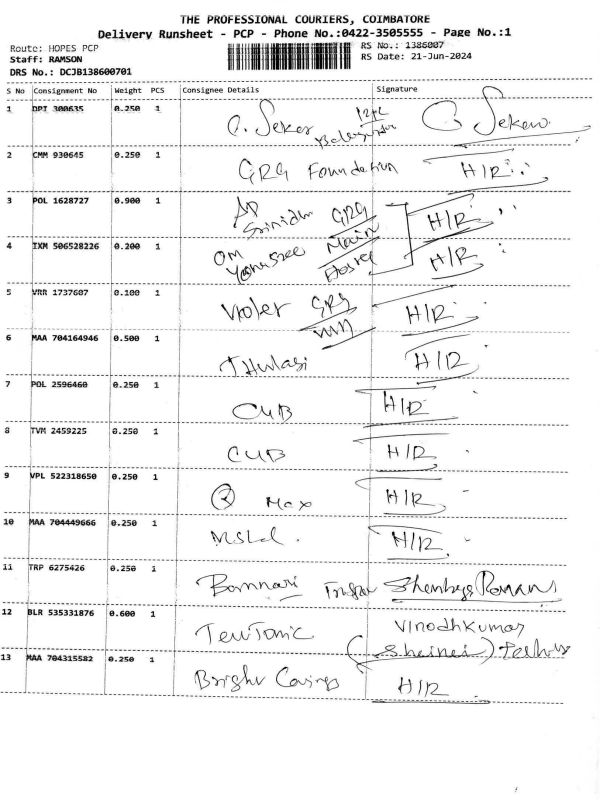 THE PROFESSIONAL COURIERS, COIMBATORE
Delivery Runsheet - PCP - Phone No.:0422-3505555 - Page No.:1
Route: HOPES PCP
RS No.: 1386007
Staff: RAMSON
RS Date: 21-Jun-2024
DRS No.: DCJB138600701
S No Consignment No Weight PCS Consignee Details Signature
1 DPI 300635 0.250 1 C. Sekar C. Sekar
2 CMM 930645 0.250 1 GRG Foundation H/R
3 POL 1628727 0.900 1 AP Srinidhi GRG Main Hostel H/R
4 IXM 506528226 0.200 1 OM H/R
5 VRR 1737607 0.100 1 Violet GRG H/R
6 MAA 704164946 0.500 1 Thulasi H/R
7 POL 2596460 0.250 1 CUB H/R
8 TVM 2459225 0.250 1 CUB H/R
9 VPL 522318650 0.250 1 R Max H/R
10 MAA 704449666 0.250 1 H/R
11 TRP 6275426 0.250 1 Bannari
12 BLR 535331876 0.600 1 Teutonic Vinodhkumar
13 MAA 704315582 0.250 1 Bright H/R